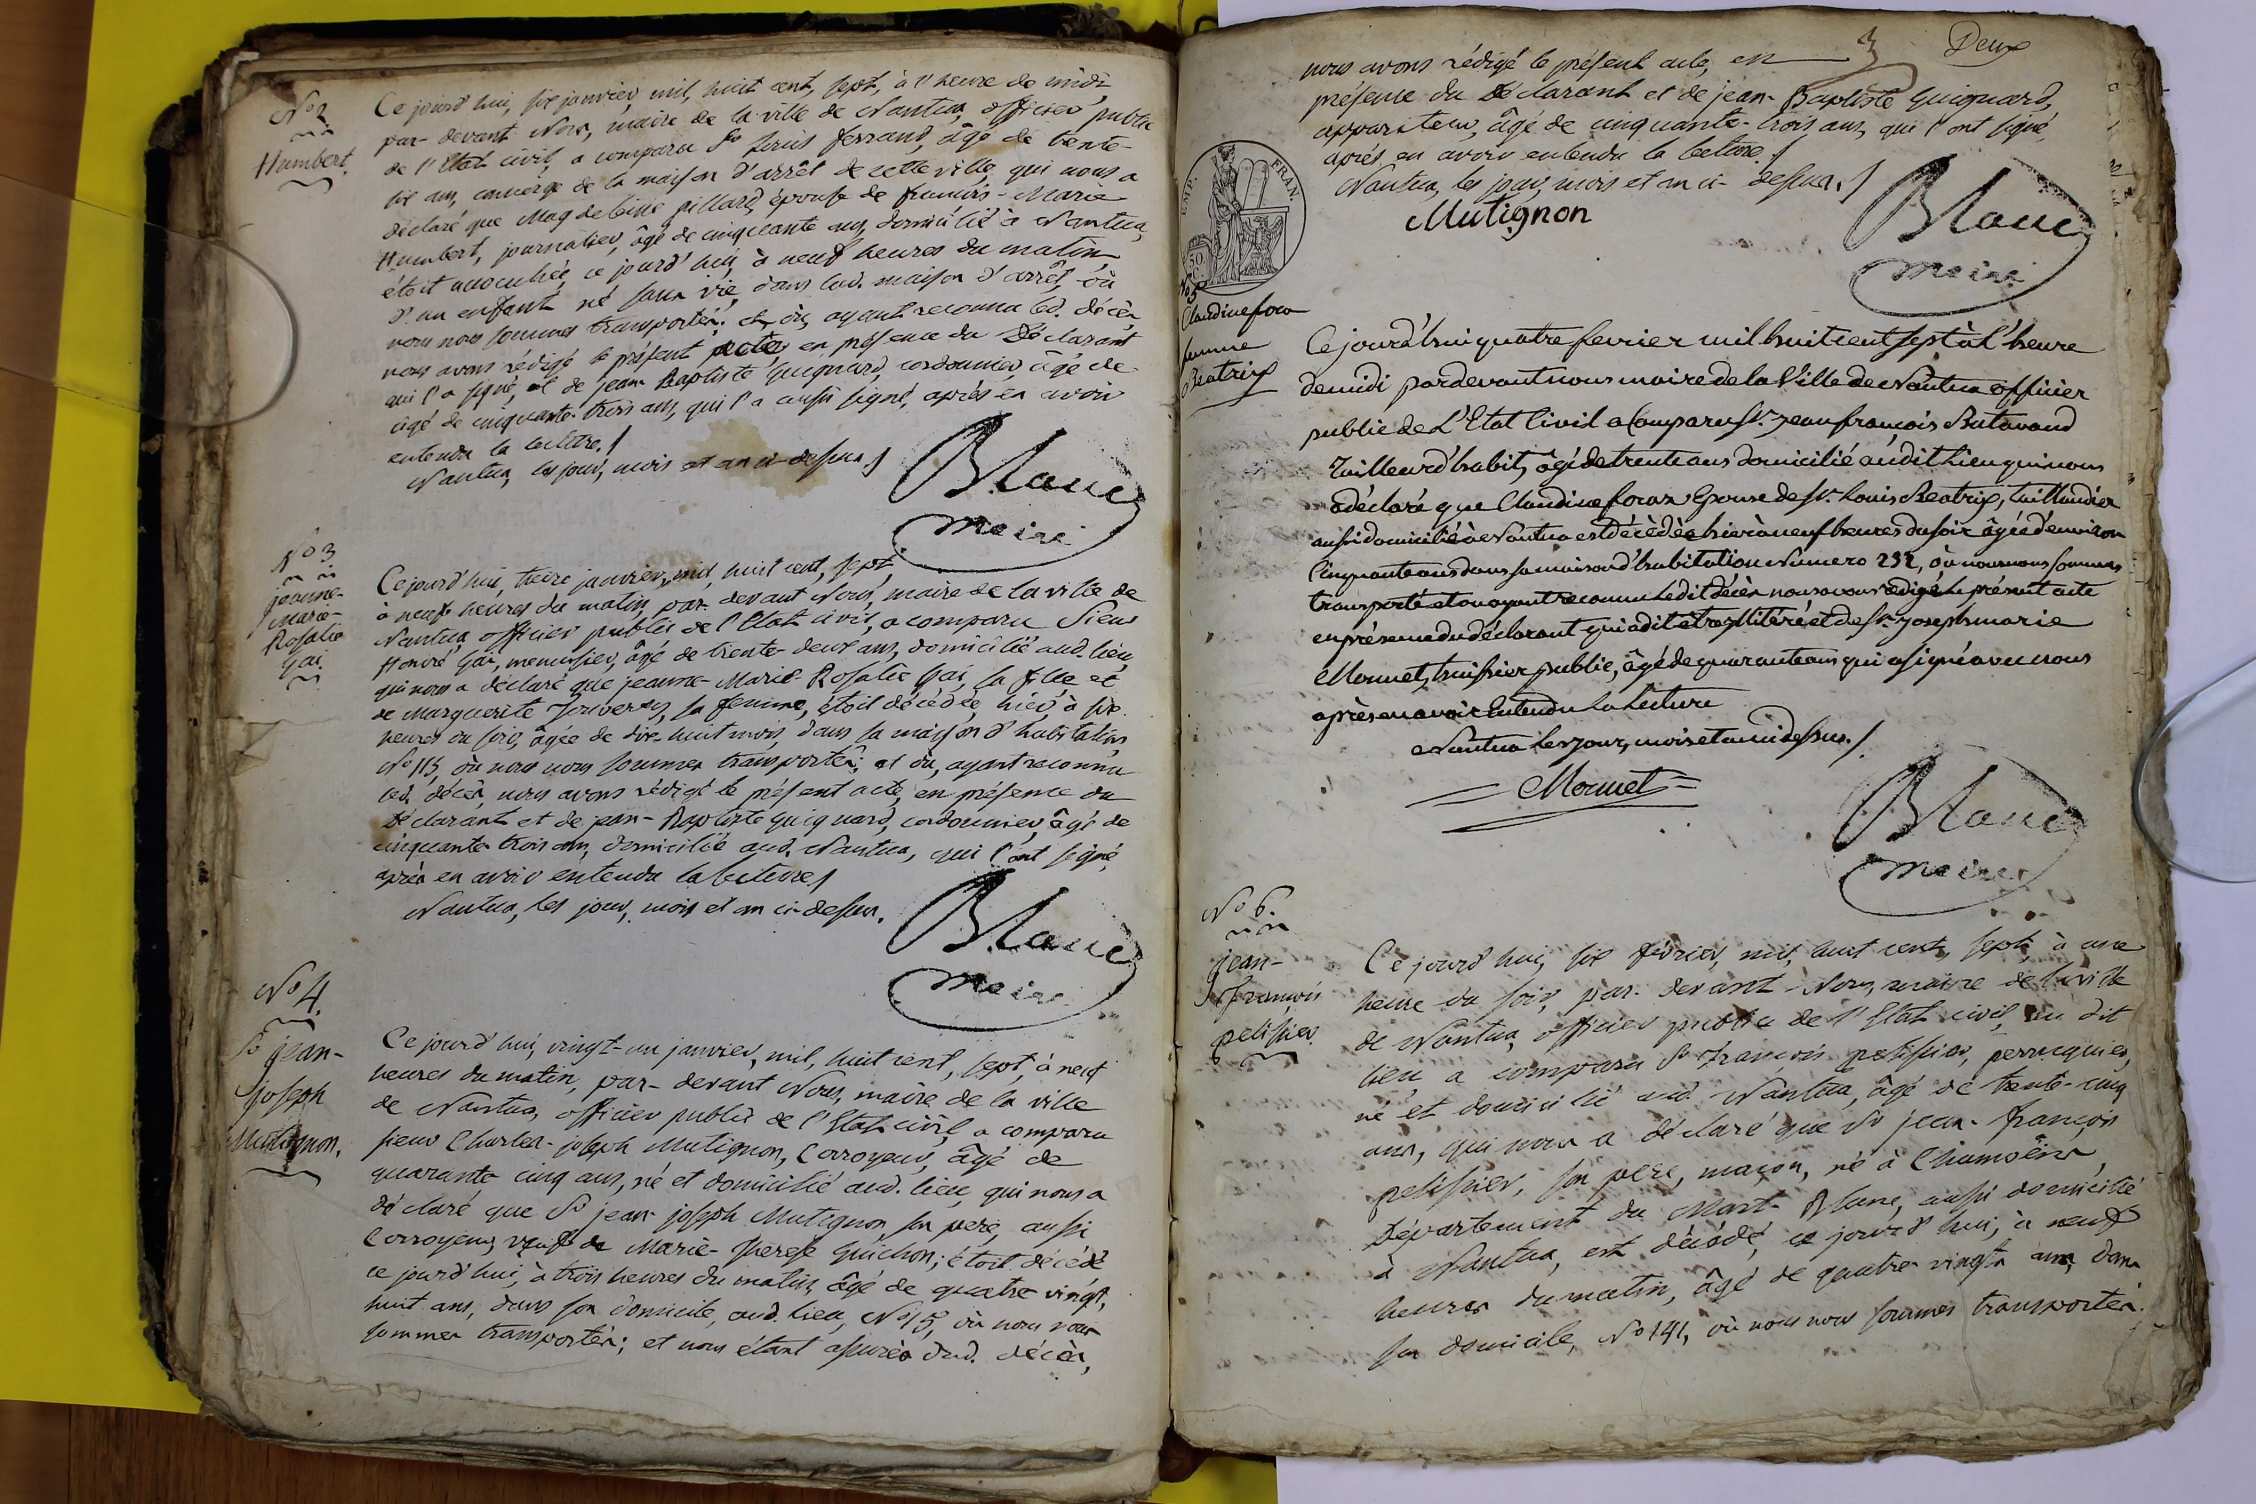 No 2
Humbert.
Ce jourd'hui, six janvier, mil, huit cent, sept, à l'heure de midi,
par-devant Nous, maire de la ville de Nantua, officier public
de l'Etat civil, a comparu Sr Louis ferrand, âgé de trente-
six ans, concierge de la maison d'arrêt de cette ville, qui nous a
déclaré que Magdeleine pillard, épouse de francois-Marie
Humbert, journalier, âgé de cinquante ans, domicilié à Nantua,
étoit accouchée, ce jourd'hui, à neuf heures du matin,
d'un enfant né sans vie, dans lad. maison d'arrêt, où
nous nous sommes transportés; et, où, ayant reconnu led. décès,
nous avons rédigé le présent acte, en présence du Déclarant
qui l'a signé, et de jean-Baptiste Guignard, cordonnier, âgé de
âgé de cinquante-trois ans, qui l'a aussi signé, après en avoir
entendu la lecture./
Nantua, les jour, mois et an ci-dessus./
Blanc
maire
No 3
jeanne-
Marie-
Rosalie
Gai.
Ce jourd'hui, treize janvier, mil, huit cent, sept,
à neuf heures du matin, par-devant Nous, maire de la ville de
Nantua, officier public de l'Etat civil, a comparu Sieur
Honoré Gai, menuisier, âgé de trente-deux ans, domicilié aud. lieu,
qui nous a déclaré que jeanne-Marie-Rosalie Gai, sa fille et
de Marguerite, sa femme, étoit décédée, hier, à six
heures du soir, âgée de dix-huit mois, dans sa maison d'habitation,
No 115, où nous nous sommes transportés; et où, ayant reconnu
led. décès, nous avons rédigé le présent acte, en présence du
Déclarant et de jean-Baptiste Guignard, cordonnier, âgé de
cinquante-trois ans, domicilié aud. Nantua, qui l'ont signé,
après en avoir entendu la lecture/
Nantua, les jour, mois et an ci-dessus.
Blanc
maire
No 4.
Sr jean-
joseph
Mutignon.
Ce jourd'hui, vingt-un janvier, mil, huit cent, sept, à neuf
heures du matin, par-devant Nous, maire de la ville
de Nantua, officier public de l'Etat civil, a comparu
sieur Charles-joseph Mutignon, Corroyeur, âgé de
quarante-cinq ans, né et domicilié aud. lieu, qui nous a
déclaré que Sr jean-joseph Mutignon, son père, aussi
Corroyeur, veuf de Marie-Therese Guichon; étoit décédé
ce jourd'hui, à trois heures du matin, âgé de quatre-vingt-
huit ans, dans son domicile, aud. lieu, No 15, où nous nous
sommes transportés; et nous étant assurés dud. décès,
Deux
nous avons rédigé le présent acte, en
présence du Déclarant et de jean-Baptiste Guignard,
appariteur, âgé de cinquante-trois ans, qui l'ont signé,
après en avoir entendu la lecture./
Nantua, les jour, mois et an ci-dessus./
Mutignon
Blanc
maire
EMP. FRAN.
50
No 5
Claudine foraz
femme
Béatrix
Ce jourd'hui quatre fevrier mil huit cent sept à l'heure
de midi pardevant nous maire de la Ville de Nantua officier
public de L'Etat Civil a Comparu Sr. jean françois Butavand
Tailleur d'habit, âgé de trente ans domicilié audit Lieu qui nous
a déclaré que Claudine foraz Epouse de Sr. Louis Béatrix, taillandier
aussi domicilié à Nantua est décèdée hier à neuf heures du soir âgée d'environ
Cinquante ans dans sa maison d'habitation Numero 232, où nous nous sommes
transporté et ou ayant reconnu Ledit décès nous avons rédigé Le présent acte
en présence du déclarant qui a dit etre illitéré et de Sr. Joseph marie
Monnet, huissier public, âgé de quarante ans qui a signé avec nous
après en avoir Entendu La Lecture
Nantua les jour, mois et an ci dessus./
Monnet
Blanc
maire
No 6.
jean-
François
pelissier
Ce jourd'hui, six février, mil, huit cent, sept, à une
heure du soir, par-devant Nous, maire de la ville
de Nantua, officier public de l'Etat civil, au dit
lieu a comparu Sr François pelissier, perruquier,
né et domicilié aud. Nantua, âgé de trente-cinq
ans, qui nous a déclaré que Sr jean-françois
pelissier, son pere, maçon, né à
Département du Mont-Blanc, aussi domicilié
à Nantua, est décédé, ce jourd'hui, à neuf
heures du matin, âgé de quatre-vingts ans, dans
son domicile, No 141, où nous nous sommes transportés.